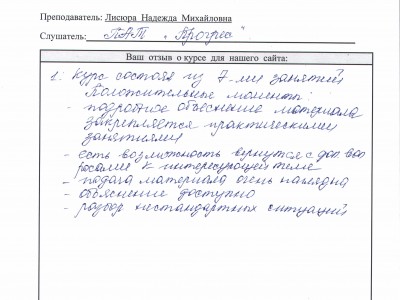 Преподаватель: Лисюра Надежда Михайловна
Слушатель: ПАТ "Прогрес"
Ваш отзыв о курсе для нашего сайта:
1. Курс состоял из 7-ми занятий
Положительные моменты:
- подробное объеснение материала
закрепляется практическими
занятиями
- есть возможность вернутся с доп. воп
росами к интересующей теме
- подача материала очень наглядна
- объяснение доступно
- разбор нестандартных ситуаций